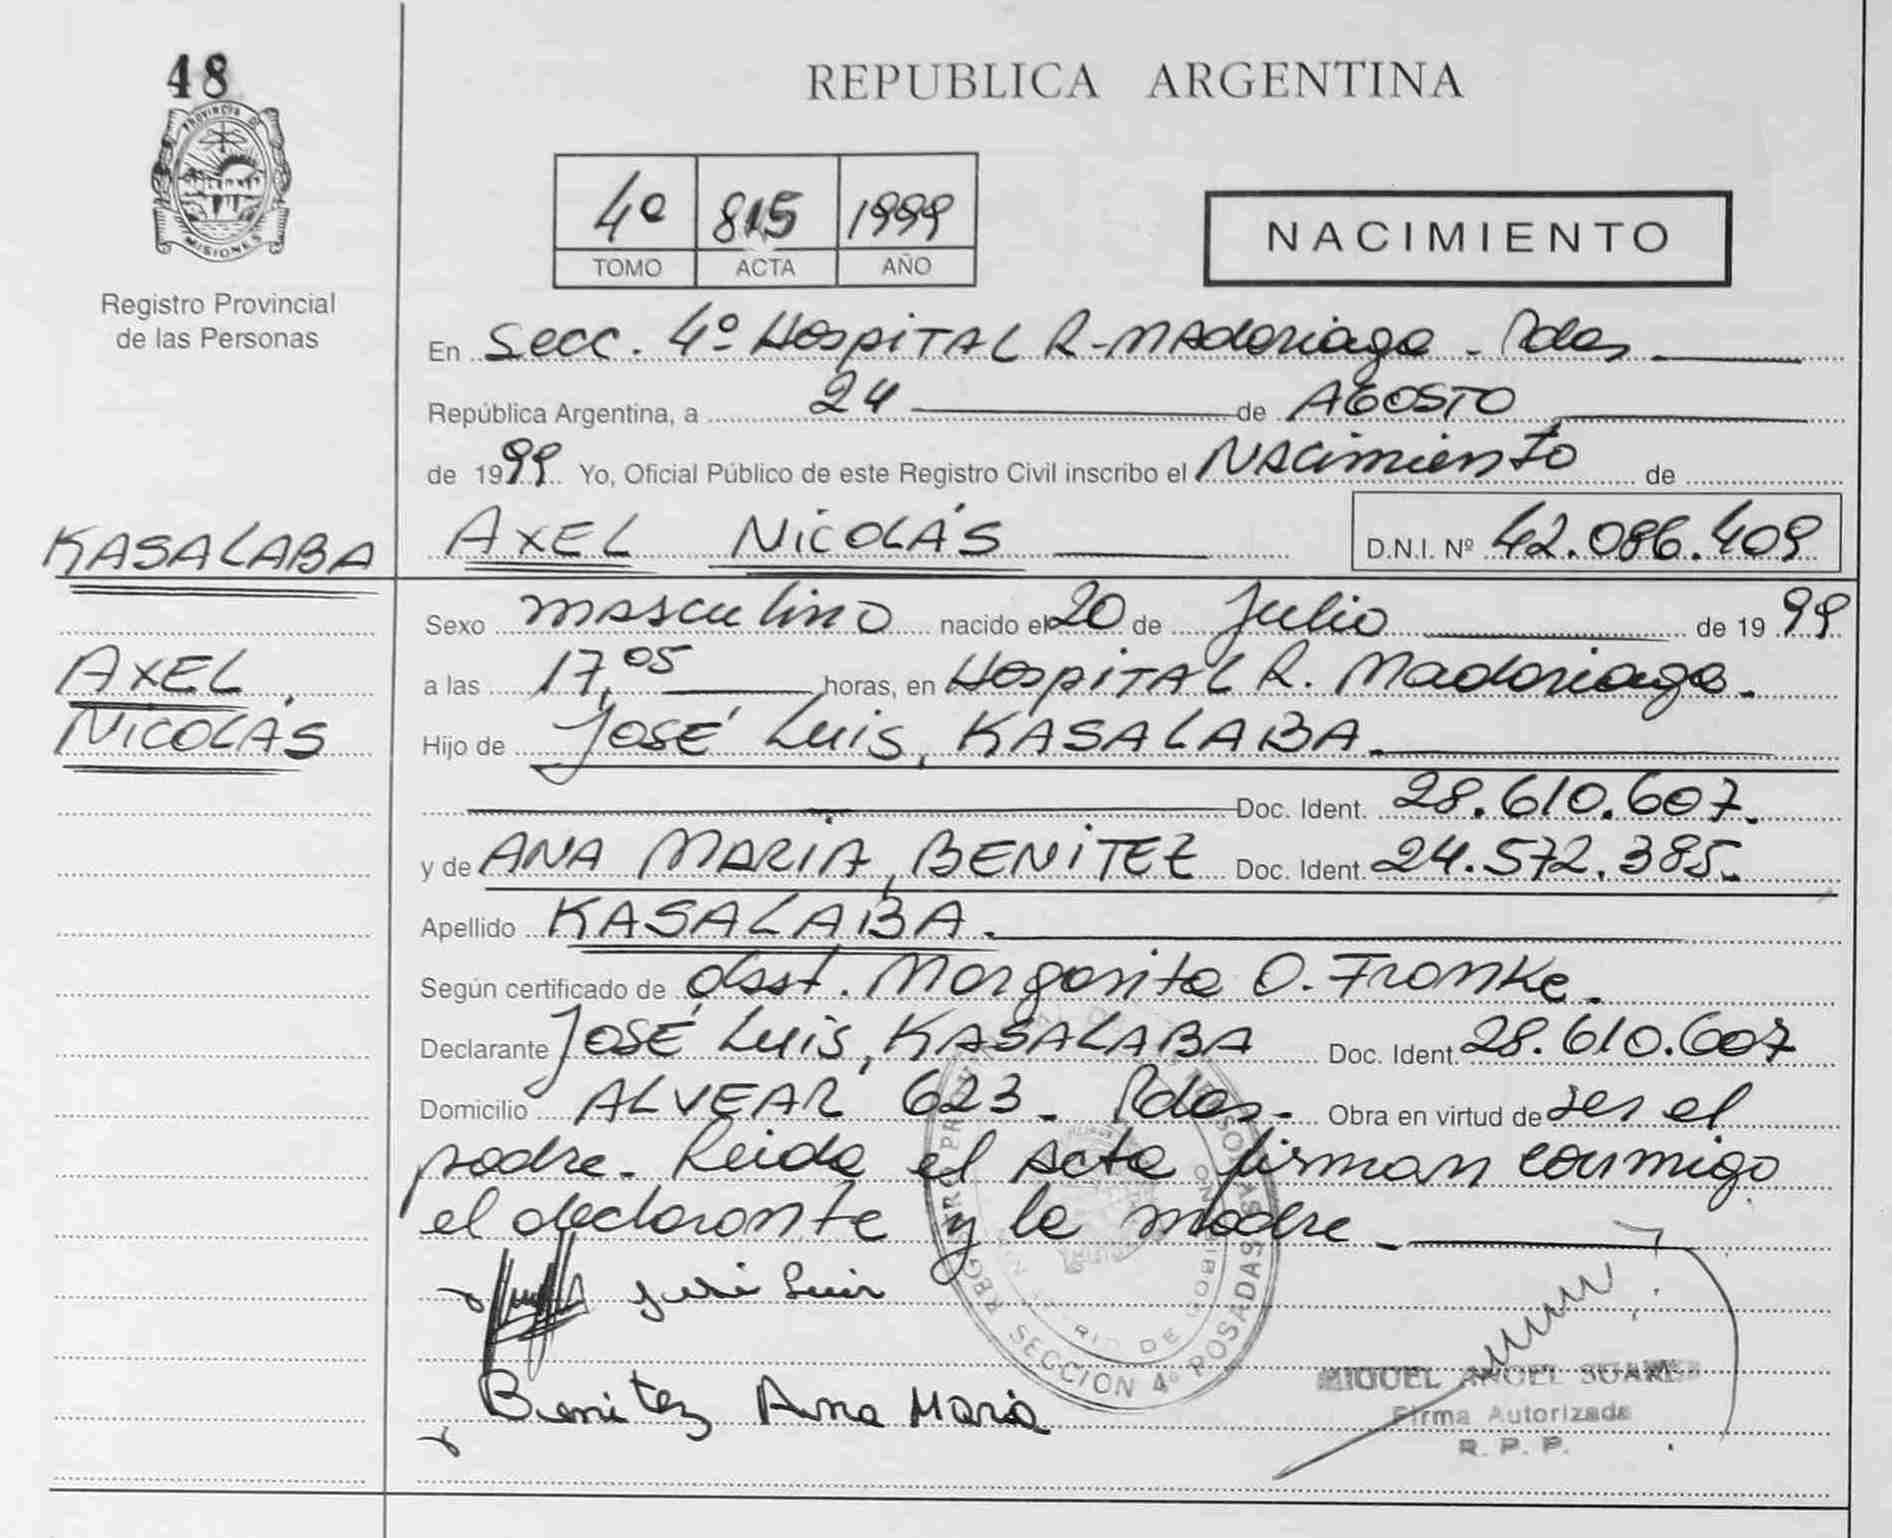 48
PROVINCIA DE
MISIONES
Registro Provincial
de las Personas
REPUBLICA ARGENTINA
4º 815 1999
TOMO ACTA AÑO
NACIMIENTO
En Secc. 4º Hospital R. Madariaga - Pdas
República Argentina, a 24 de AGOSTO
de 1999 Yo, Oficial Público de este Registro Civil inscribo el Nacimiento de
KASALABA AXEL NICOLÁS D.N.I. Nº 42.086.409
Sexo masculino nacido el 20 de Julio de 1999
AXEL a las 17,05 horas, en Hospital R. Madariaga.
NICOLÁS Hijo de José Luis, KASALABA.
Doc. Ident. 28.610.607.
y de ANA MARIA, BENITEZ Doc. Ident. 24.572.385.
Apellido KASALABA.
Según certificado de obst. Margarita O. Franke.
Declarante José Luis, KASALABA Doc. Ident. 28.610.607
Domicilio ALVEAR 623. Pdas. Obra en virtud de ser el
padre. Leida el acta firman conmigo
el declarante y la madre.
José Luis
SECCION 4º POSADAS
Benitez Ana Maria
MIGUEL ANGEL SUAREZ
Firma Autorizada
R. P. P.